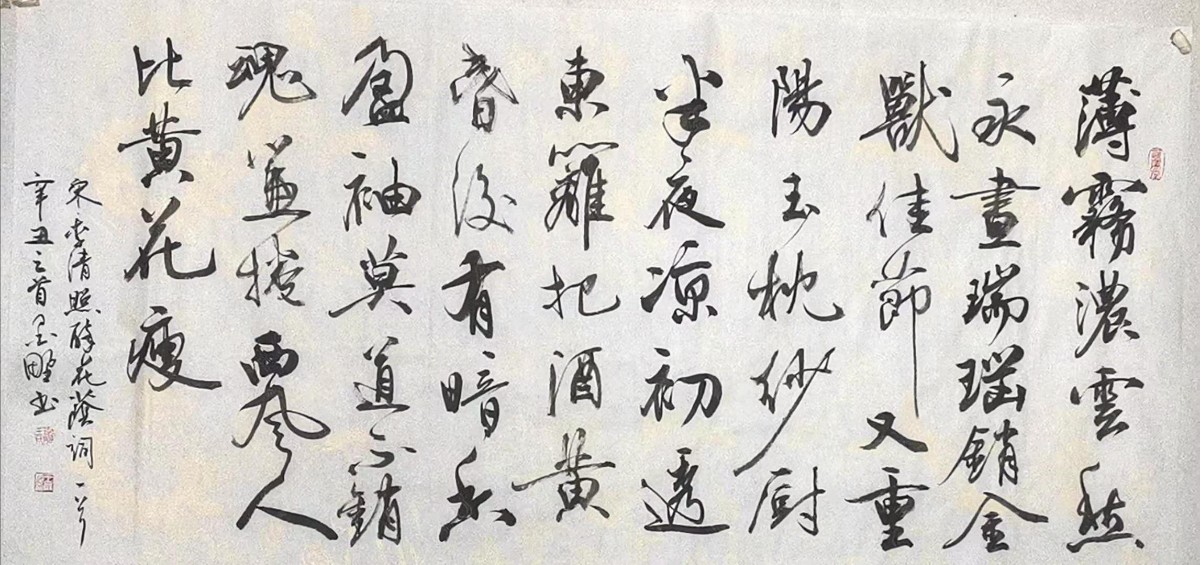 薄霧濃雲愁
永晝瑞瑙銷金
獸佳節又重
陽玉枕紗厨
半夜凉初透
東籬把酒黄
昏後有暗香
盈袖莫道不銷
魂簾捲西風人
比黄花瘦
宋李清照醉花蔭詞一首
辛丑之首野书